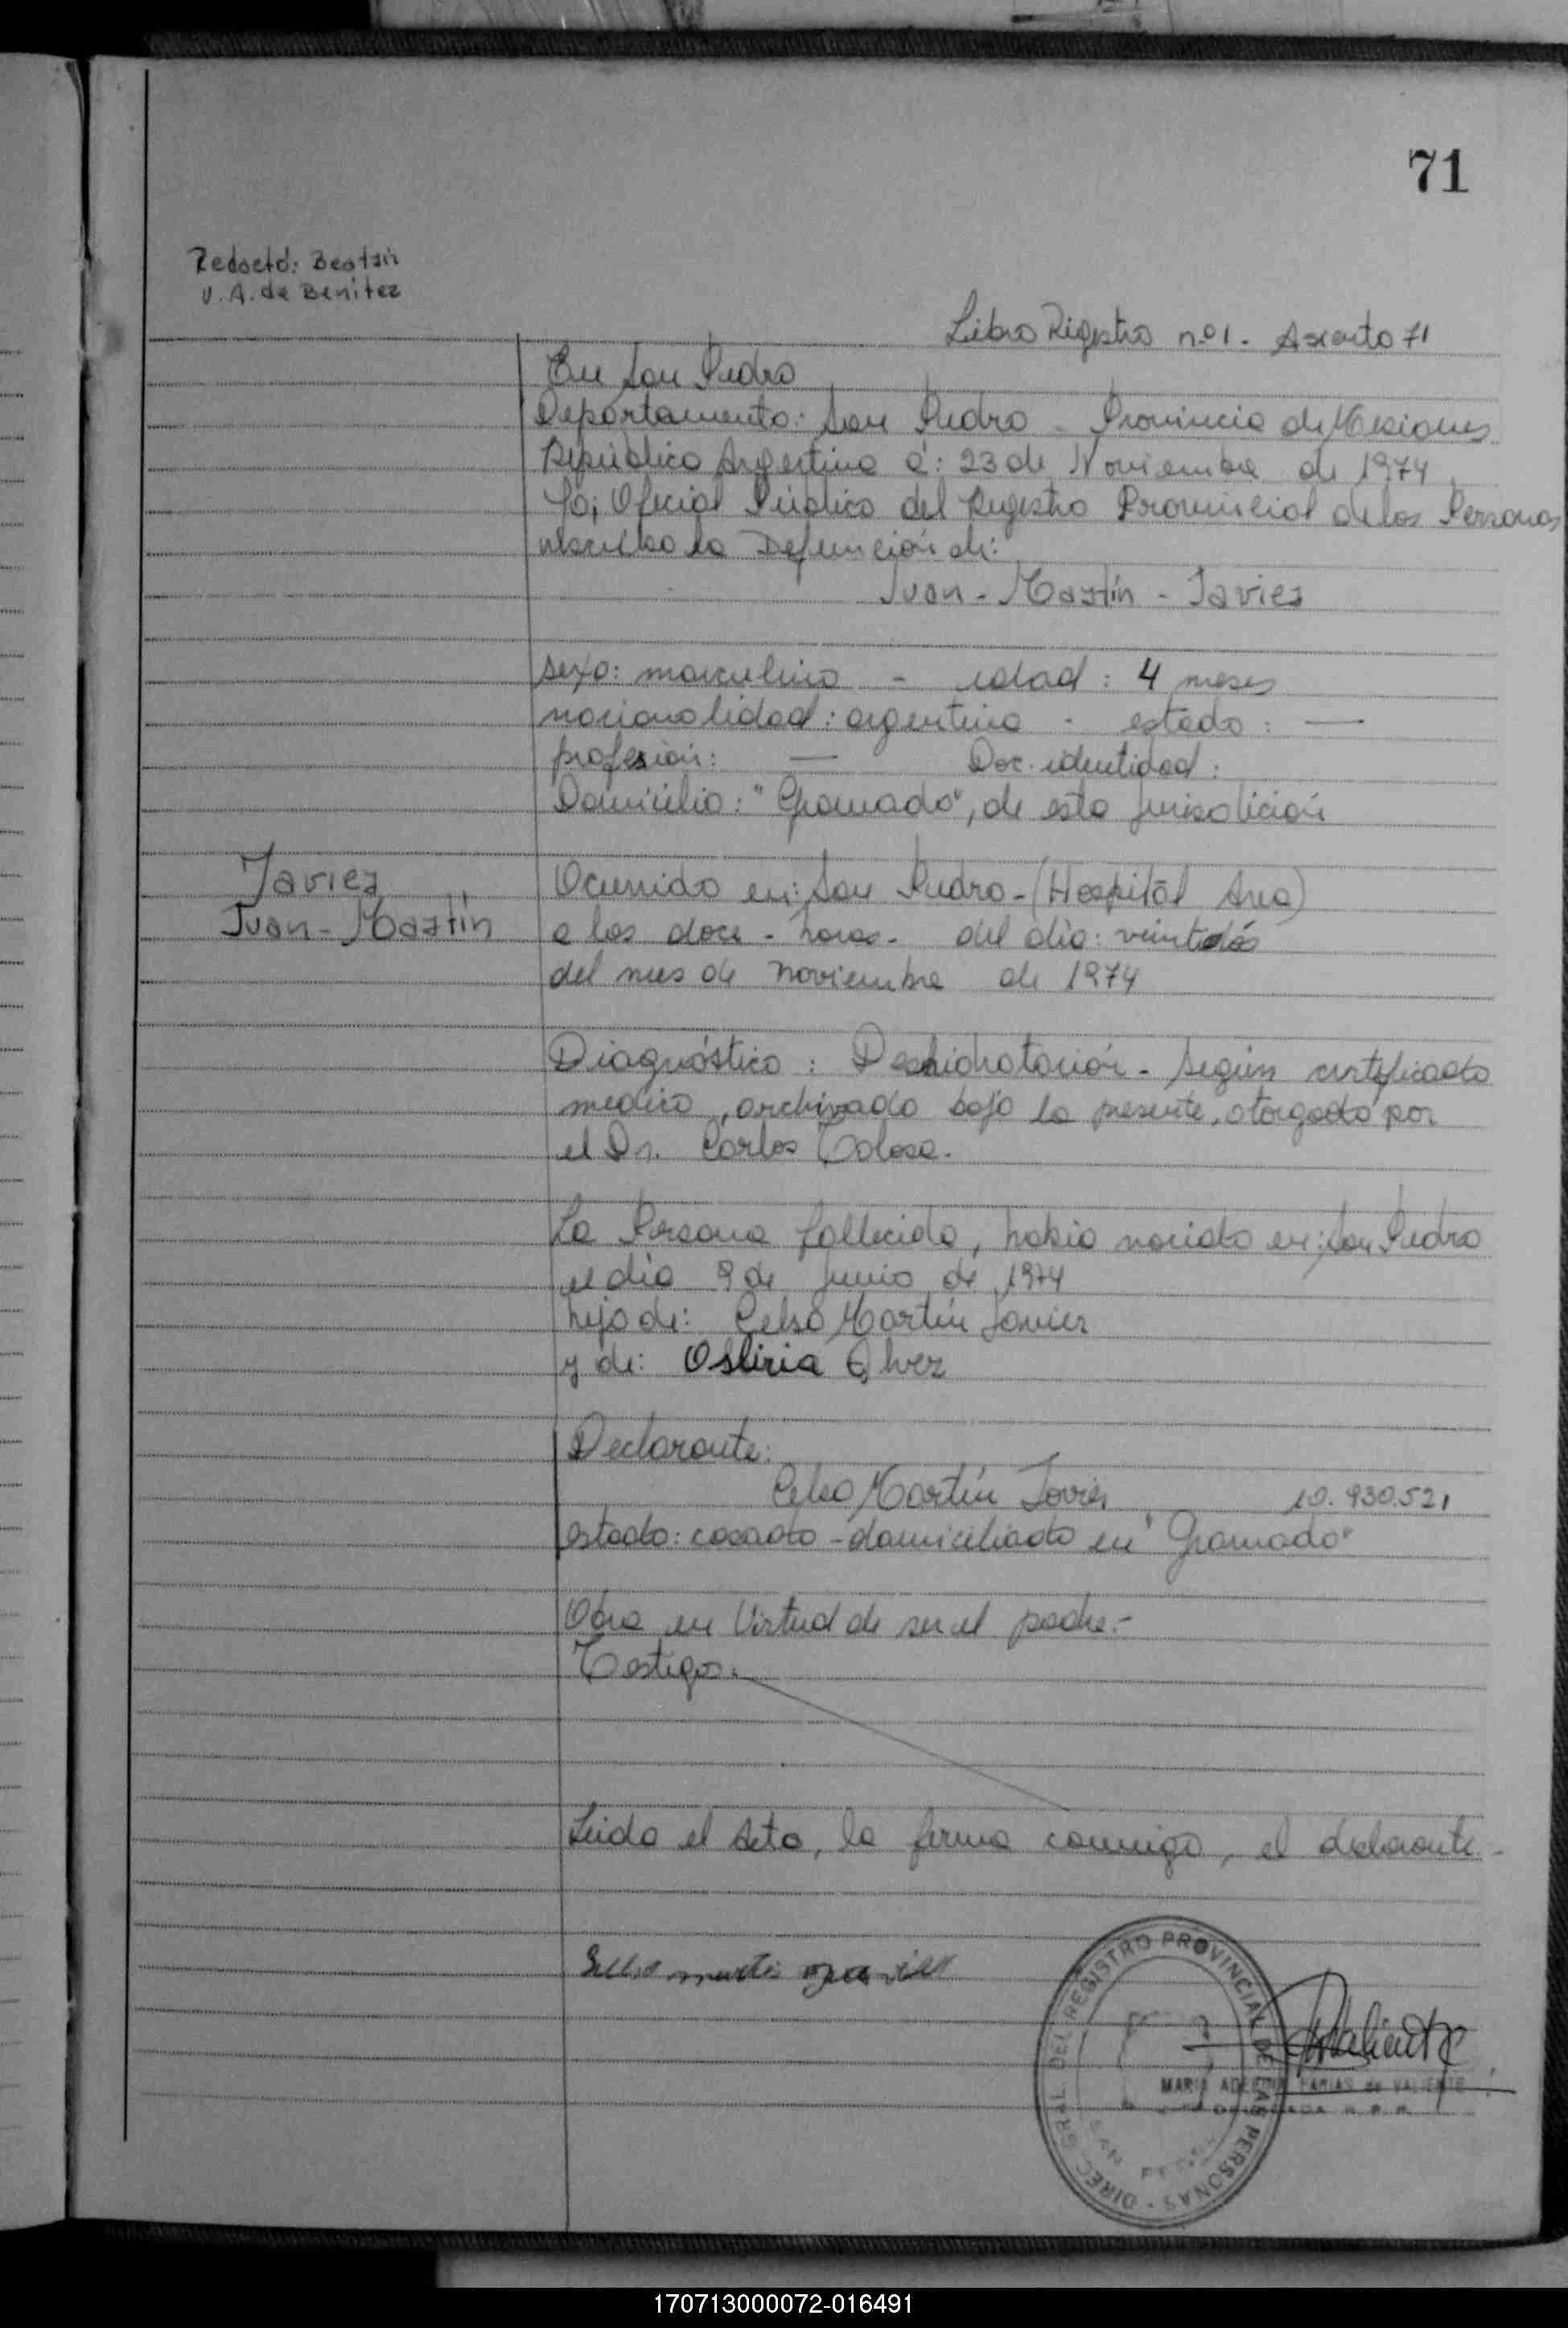 71
Redactó: Beatriz
V. A. de Benitez
Libro Registro nº 1. Asiento 71
En San Pedro
Departamento: San Pedro - Provincia de Misiones
República Argentina a: 23 de Noviembre de 1974
Yo, Oficial Público del Registro Provincial de las Personas
inscribo la Defunción de:
Juan - Martín - Javier
sexo: masculino - edad: 4 meses
nacionalidad: argentina - estado: —
profesión: — Doc. identidad:
Domicilio: "Gramado", de esta jurisdicción
Javier
Juan - Martín
Ocurrido en: San Pedro - (Hospital Area)
a las doce - horas - del día: veintidós
del mes de noviembre de 1974
Diagnóstico: Deshidratación - según certificado
médico, archivado bajo la presente, otorgado por
el Dr. Carlos Tolosa.
La Persona fallecida, había nacido en: San Pedro
el día 9 de Junio de 1974
hijo de: Celso Martín Javier
y de: Osliria
Declarante:
Celso Martín Javier 10.930.521
estado: casado - domiciliado en "Gramado"
Obra en Virtud de ser el padre.-
Testigos:
Leida el Acta, la firma conmigo, el declarante -
DIREC. GRAL. DEL REGISTRO PROVINCIAL DE LAS PERSONAS
SAN PEDRO
MARIA FARIAS de VALIENTE
170713000072-016491